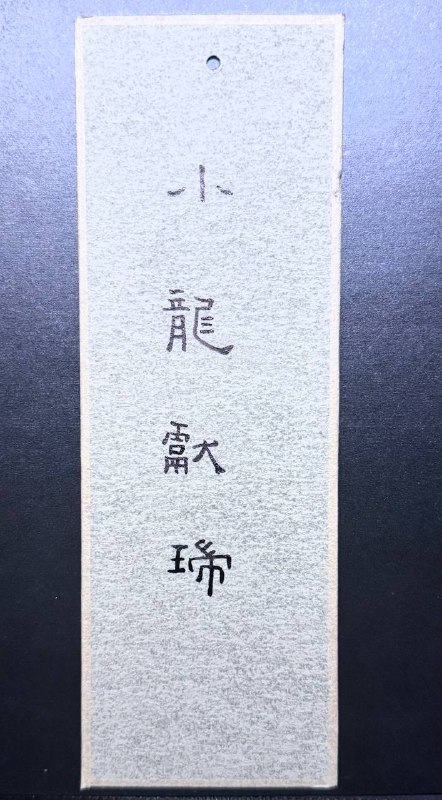 小龍獻瑞